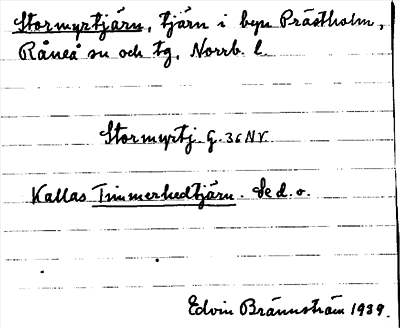 Stormyrtjärn, tjärn i byn Prästholm,
Råneå sn och tg, Norrb. l.
Stormyrtj. G. 36 NV.
Kallas Timmerhedtjärn. Se d. o.
Edvin Brännström 1939.